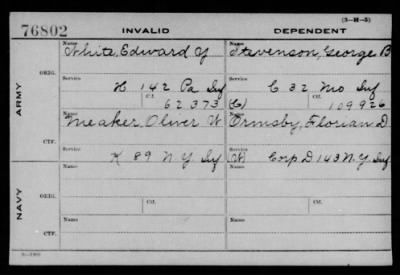 (3-H-5)
76802 INVALID DEPENDENT
Name Name
White, Edward Y Stevenson, George B
ORIG. Service Service
H 142 Pa Inf C 32 Mo Inf
ARMY Ctf. Ctf.
62373 (C) 109926
Name Name
Meaker Oliver W Ormsby, Florian D
CTF. Service Service
K 89 N.Y Inf (W) Corp D 143 N.Y Inf
Name Name
ORIG.
NAVY Service Ctf. Service Ctf.
Name Name
CTF.